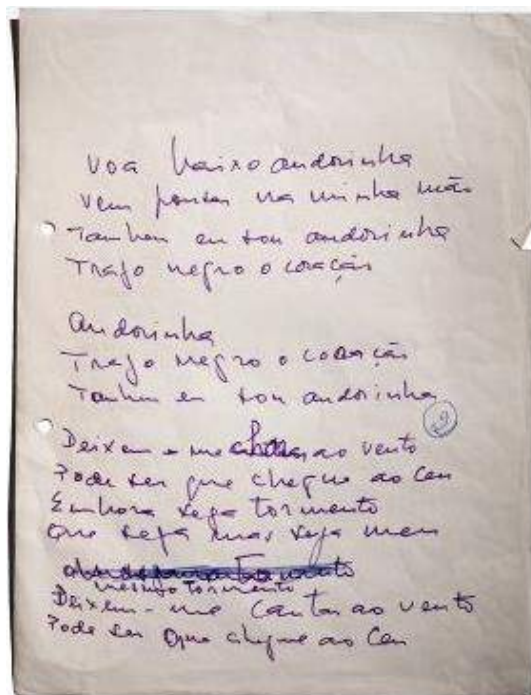 Voa baixo andorinha
Vem pousar na minha mão
Tambem eu sou andorinha
Trajo negro o coração
Andorinha
Trajo negro o coração
Tambem eu sou andorinha
9
Deixem-me ao vento
Pode ser que chegue ao Ceu
Embora seja tormento
Que seja mas seja meu
mesmo tormento
Deixem-me cantar ao vento
Pode ser que chegue ao Ceu